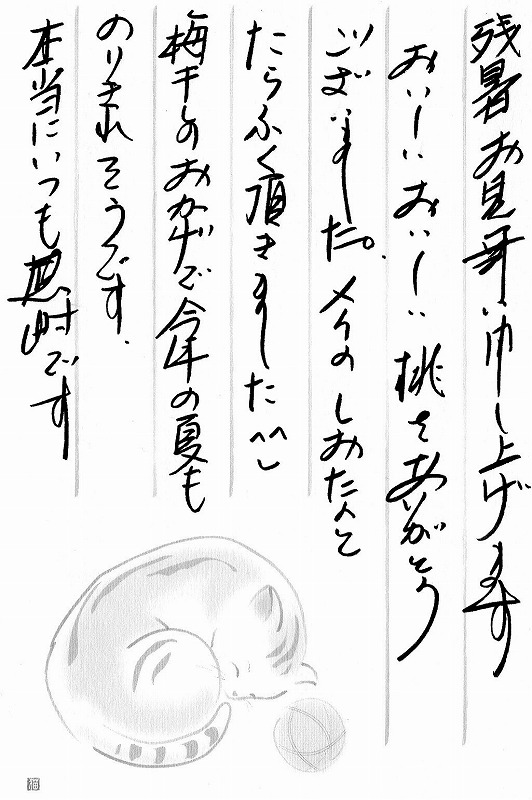 残暑お見舞い申し上げます
おいしいおいしい桃をありがとう
ございました。
たらふく頂きました^^
梅干しのおかげで今年の夏も
のりきれそうです.
本当にいつも感謝です